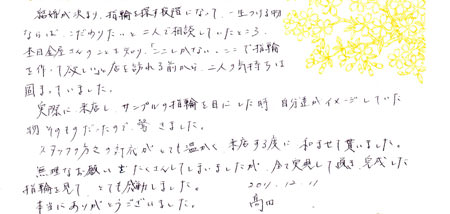 結婚が決まり、指輪を探す段階になって、一生つける物
ならば、こだわりたいと二人で相談していたところ、
本日金屋さんのことを知り、「ここしかない、ここで指輪
を作って欲しい」とお店を訪れる前から、二人の気持ちは
固まっていました。
実際に来店し、サンプルの指輪を目にした時 自分達がイメージしていた
物そのものだったので、驚きました。
スタッフの方の対応がとても温かく 来店する度に 和ませて貰いました。
無理なお願いをたくさんしてしまいましたが、全て実現して頂き、完成した
指輪を見て、とても感動しました。
本当にありがとうございました。
2011.12.11
高田